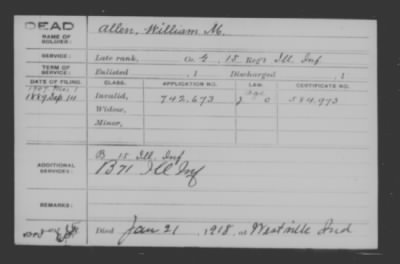 DEAD
NAME OF SOLDIER: Allen, William M.
SERVICE: Late rank, Co. G 15 Reg't Ill. Inf
TERM OF SERVICE: Enlisted , 1 Discharged , 1
DATE OF FILING. CLASS. APPLICATION NO. LAW. CERTIFICATE NO.
1889 Sep 14 Invalid, 742,673 584,973
Widow,
Minor,
ADDITIONAL SERVICES: B 15 Ill. Inf
B 71 Ill Inf
REMARKS:
Died Jan 21, 1918, at Westville Ind